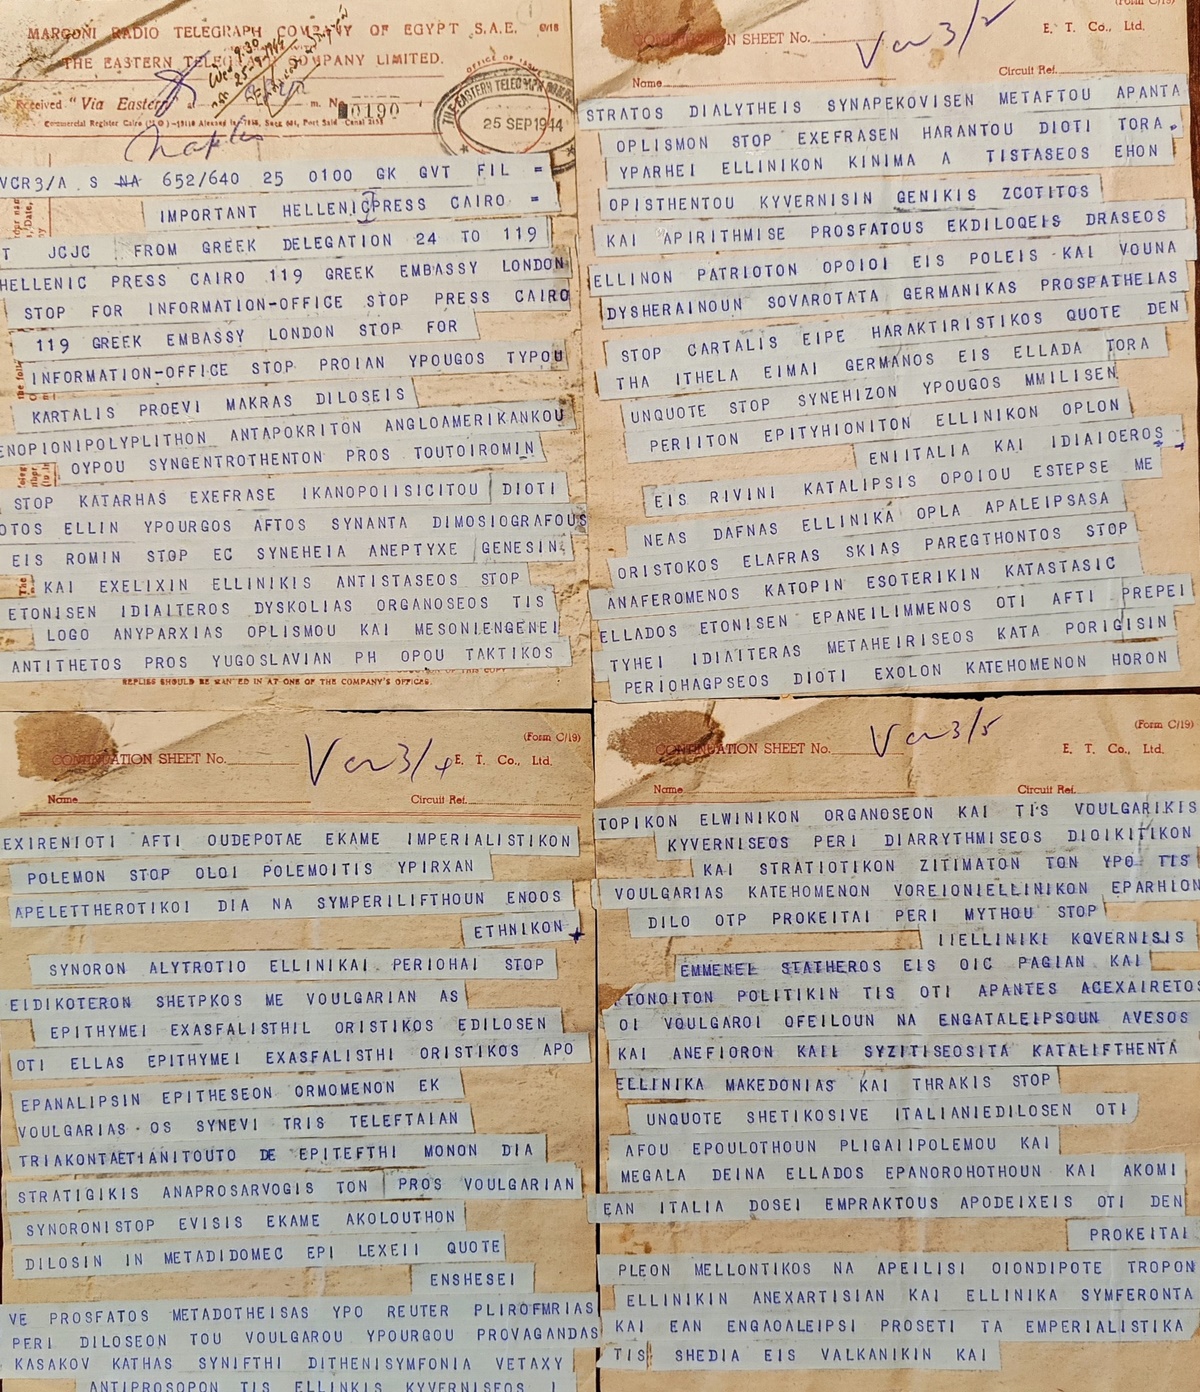 MARCONI RADIO TELEGRAPH COMPANY OF EGYPT S.A.E.
THE EASTERN TELEGRAPH COMPANY LIMITED.
Received "Via Eastern" at m. No 00190
THE EASTERN TELEGRAPH
25 SEP 1944
Naples
VCR3/A S NA 652/640 25 0100 GK GVT FIL =
IMPORTANT HELLENIC PRESS CAIRO =
T JCJC FROM GREEK DELEGATION 24 TO 119
HELLENIC PRESS CAIRO 119 GREEK EMBASSY LONDON
STOP FOR INFORMATION-OFFICE STOP PRESS CAIRO
119 GREEK EMBASSY LONDON STOP FOR
INFORMATION-OFFICE STOP PROIAN YPOUGOS TYPOU
KARTALIS PROEVI MAKRAS DILOSEIS
ENOPIONIPOLYPLITHON ANTAPOKRITON ANGLOAMERIKANKOU
OYPOU SYNGENTROTHENTON PROS TOUTOIROMIN
STOP KATARHAS EXEFRASE IKANOPOIISICITOU DIOTI
OTOS ELLIN YPOURGOS AFTOS SYNANTA DIMOSIOGRAFOUS
EIS ROMIN STOP EC SYNEHEIA ANEPTYXE GENESIN
KAI EXELIXIN ELLINIKIS ANTISTASEOS STOP
ETONISEN IDIAITEROS DYSKOLIAS ORGANOSEOS TIS
LOGO ANYPARXIAS OPLISMOU KAI MESONIENGENEI
ANTITHETOS PROS YUGOSLAVIAN PH OPOU TAKTIKOS
REPLIES SHOULD BE HANDED IN AT ONE OF THE COMPANY'S OFFICES.
(Form C/19)
CONTINUATION SHEET No. Vcr 3/2 E. T. Co., Ltd.
Name Circuit Ref.
STRATOS DIALYTHEIS SYNAPEKOVISEN METAFTOU APANTA
OPLISMON STOP EXEFRASEN HARANTOU DIOTI TORA.
YPARHEI ELLINIKON KINIMA A TISTASEOS EHON
OPISTHENTOU KYVERNISIN GENIKIS ZCOTITOS
KAI APIRITHMISE PROSFATOUS EKDILOQEIS DRASEOS
ELLINON PATRIOTON OPOIOI EIS POLEIS KAI VOUNA
DYSHERAINOUN SOVAROTATA GERMANIKAS PROSPATHEIAS
STOP CARTALIS EIPE HARAKTIRISTIKOS QUOTE DEN
THA ITHELA EIMAI GERMANOS EIS ELLADA TORA
UNQUOTE STOP SYNEHIZON YPOUGOS MMILISEN
PERIITON EPITYHIONITON ELLINIKON OPLON
ENIITALIA KAI IDIAIOEROS
EIS RIVINI KATALIPSIS OPOIOU ESTEPSE ME
NEAS DAFNAS ELLINIKA OPLA APALEIPSASA
ORISTOKOS ELAFRAS SKIAS PAREGTHONTOS STOP
ANAFEROMENOS KATOPIN ESOTERIKIN KATASTASIC
ELLADOS ETONISEN EPANEILIMMENOS OTI AFTI PREPEI
TYHEI IDIAITERAS METAHEIRISEOS KATA PORIGISIN
PERIOHAGPSEOS DIOTI EXOLON KATEHOMENON HORON
(Form C/19)
CONTINUATION SHEET No. Vcr 3/4 E. T. Co., Ltd.
Name Circuit Ref.
EXIRENIOTI AFTI OUDEPOTAE EKAME IMPERIALISTIKON
POLEMON STOP OLOI POLEMOITIS YPIRXAN
APELETTHEROTIKOI DIA NA SYMPERILIFTHOUN ENOOS
ETHNIKON
SYNORON ALYTROTIO ELLINIKAI PERIOHAI STOP
EIDIKOTERON SHETPKOS ME VOULGARIAN AS
EPITHYMEI EXASFALISTHIL ORISTIKOS EDILOSEN
OTI ELLAS EPITHYMEI EXASFALISTHI ORISTIKOS APO
EPANALIPSIN EPITHESEON ORMOMENON EK
VOULGARIAS OS SYNEVI TRIS TELEFTAIAN
TRIAKONTAETIANITOUTO DE EPITEFTHI MONON DIA
STRATIGIKIS ANAPROSARVOGIS TON PROS VOULGARIAN
SYNORONISTOP EVISIS EKAME AKOLOUTHON
DILOSIN IN METADIDOMEC EPI LEXEII QUOTE
ENSHESEI
VE PROSFATOS METADOTHEISAS YPO REUTER PLIROFMRIAS
PERI DILOSEON TOU VOULGAROU YPOURGOU PROVAGANDAS
KASAKOV KATHAS SYNIFTHI DITHENISYMFONIA VETAXY
ANTIPROSOPON TIS ELLINKIS KYVERNISEOS I
(Form C/19)
CONTINUATION SHEET No. Vcr 3/5 E. T. Co., Ltd.
Name Circuit Ref.
TOPIKON ELWINIKON ORGANOSEON KAI TIS VOULGARIKIS
KYVERNISEOS PERI DIARRYTHMISEOS DIOIKITIKON
KAI STRATIOTIKON ZITIMATON TON YPO TIS
VOULGARIAS KATEHOMENON VOREIONIELLINIKON EPARHION
DILO OTP PROKEITAI PERI MYTHOU STOP
IIELLINIKI KQVERNISIS
EMMENEL STATHEROS EIS OIC PAGIAN KAI
ETONOITON POLITIKIN TIS OTI APANTES ACEXAIRETOS
OI VOULGAROI OFEILOUN NA ENGATALEIPSOUN AVESOS
KAI ANEFIORON KAIL SYZITISEOSITA KATALIFTHENTA
ELLINIKA MAKEDONIAS KAI THRAKIS STOP
UNQUOTE SHETIKOSIVE ITALIANIEDILOSEN OTI
AFOU EPOULOTHOUN PLIGAIIPOLEMOU KAI
MEGALA DEINA ELLADOS EPANOROHOTHOUN KAI AKOMI
EAN ITALIA DOSEI EMPRAKTOUS APODEIXEIS OTI DEN
PROKEITAI
PLEON MELLONTIKOS NA APEILISI OIONDIPOTE TROPON
ELLINIKIN ANEXARTISIAN KAI ELLINIKA SYMFERONTA
KAI EAN ENGAOALEIPSI PROSETI TA EMPERIALISTIKA
TIS SHEDIA EIS VALKANIKIN KAI